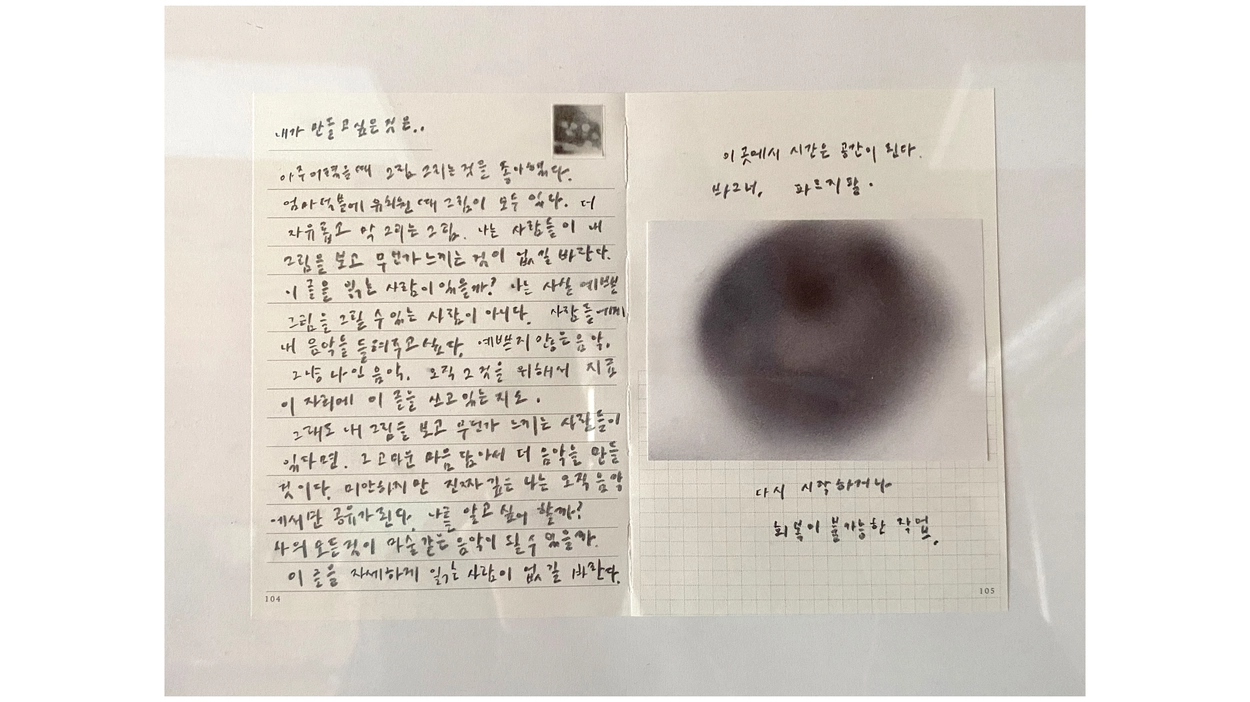 내가 만들고 싶은 것은..
아주 어렸을 때 그림 그리는 것을 좋아했다.
엄마 덕분에 유치원 때 그림이 모두 있다. 더
자유롭고 막 그리는 그림. 나는 사람들이 내
그림을 보고 무언가 느끼는 것이 없길 바란다.
이 글을 읽는 사람이 있을까? 나는 사실 예쁜
그림을 그릴 수 있는 사람이 아니다. 사람들에게
내 음악을 들려주고 싶다. 예쁘지 않은 음악.
그냥 나인 음악. 오직 그것을 위해서 지금
이 자리에 이 글을 쓰고 있는지도.
그래도 내 그림을 보고 무언가 느끼는 사람들이
있다면. 그 고마운 마음 담아서 더 음악을 만들
것이다. 미안하지만 진짜 깊은 나는 오직 음악
에서만 공유가 된다. 나를 알고 싶어 할까?
나의 모든 것이 마술같은 음악이 될 수 있을까.
이 글을 자세하게 읽는 사람이 없길 바란다.
104
이 곳에서 시간은 공간이 된다.
바그너, 파르지팔.
다시 시작하거나
회복이 불가능한 작업.
105